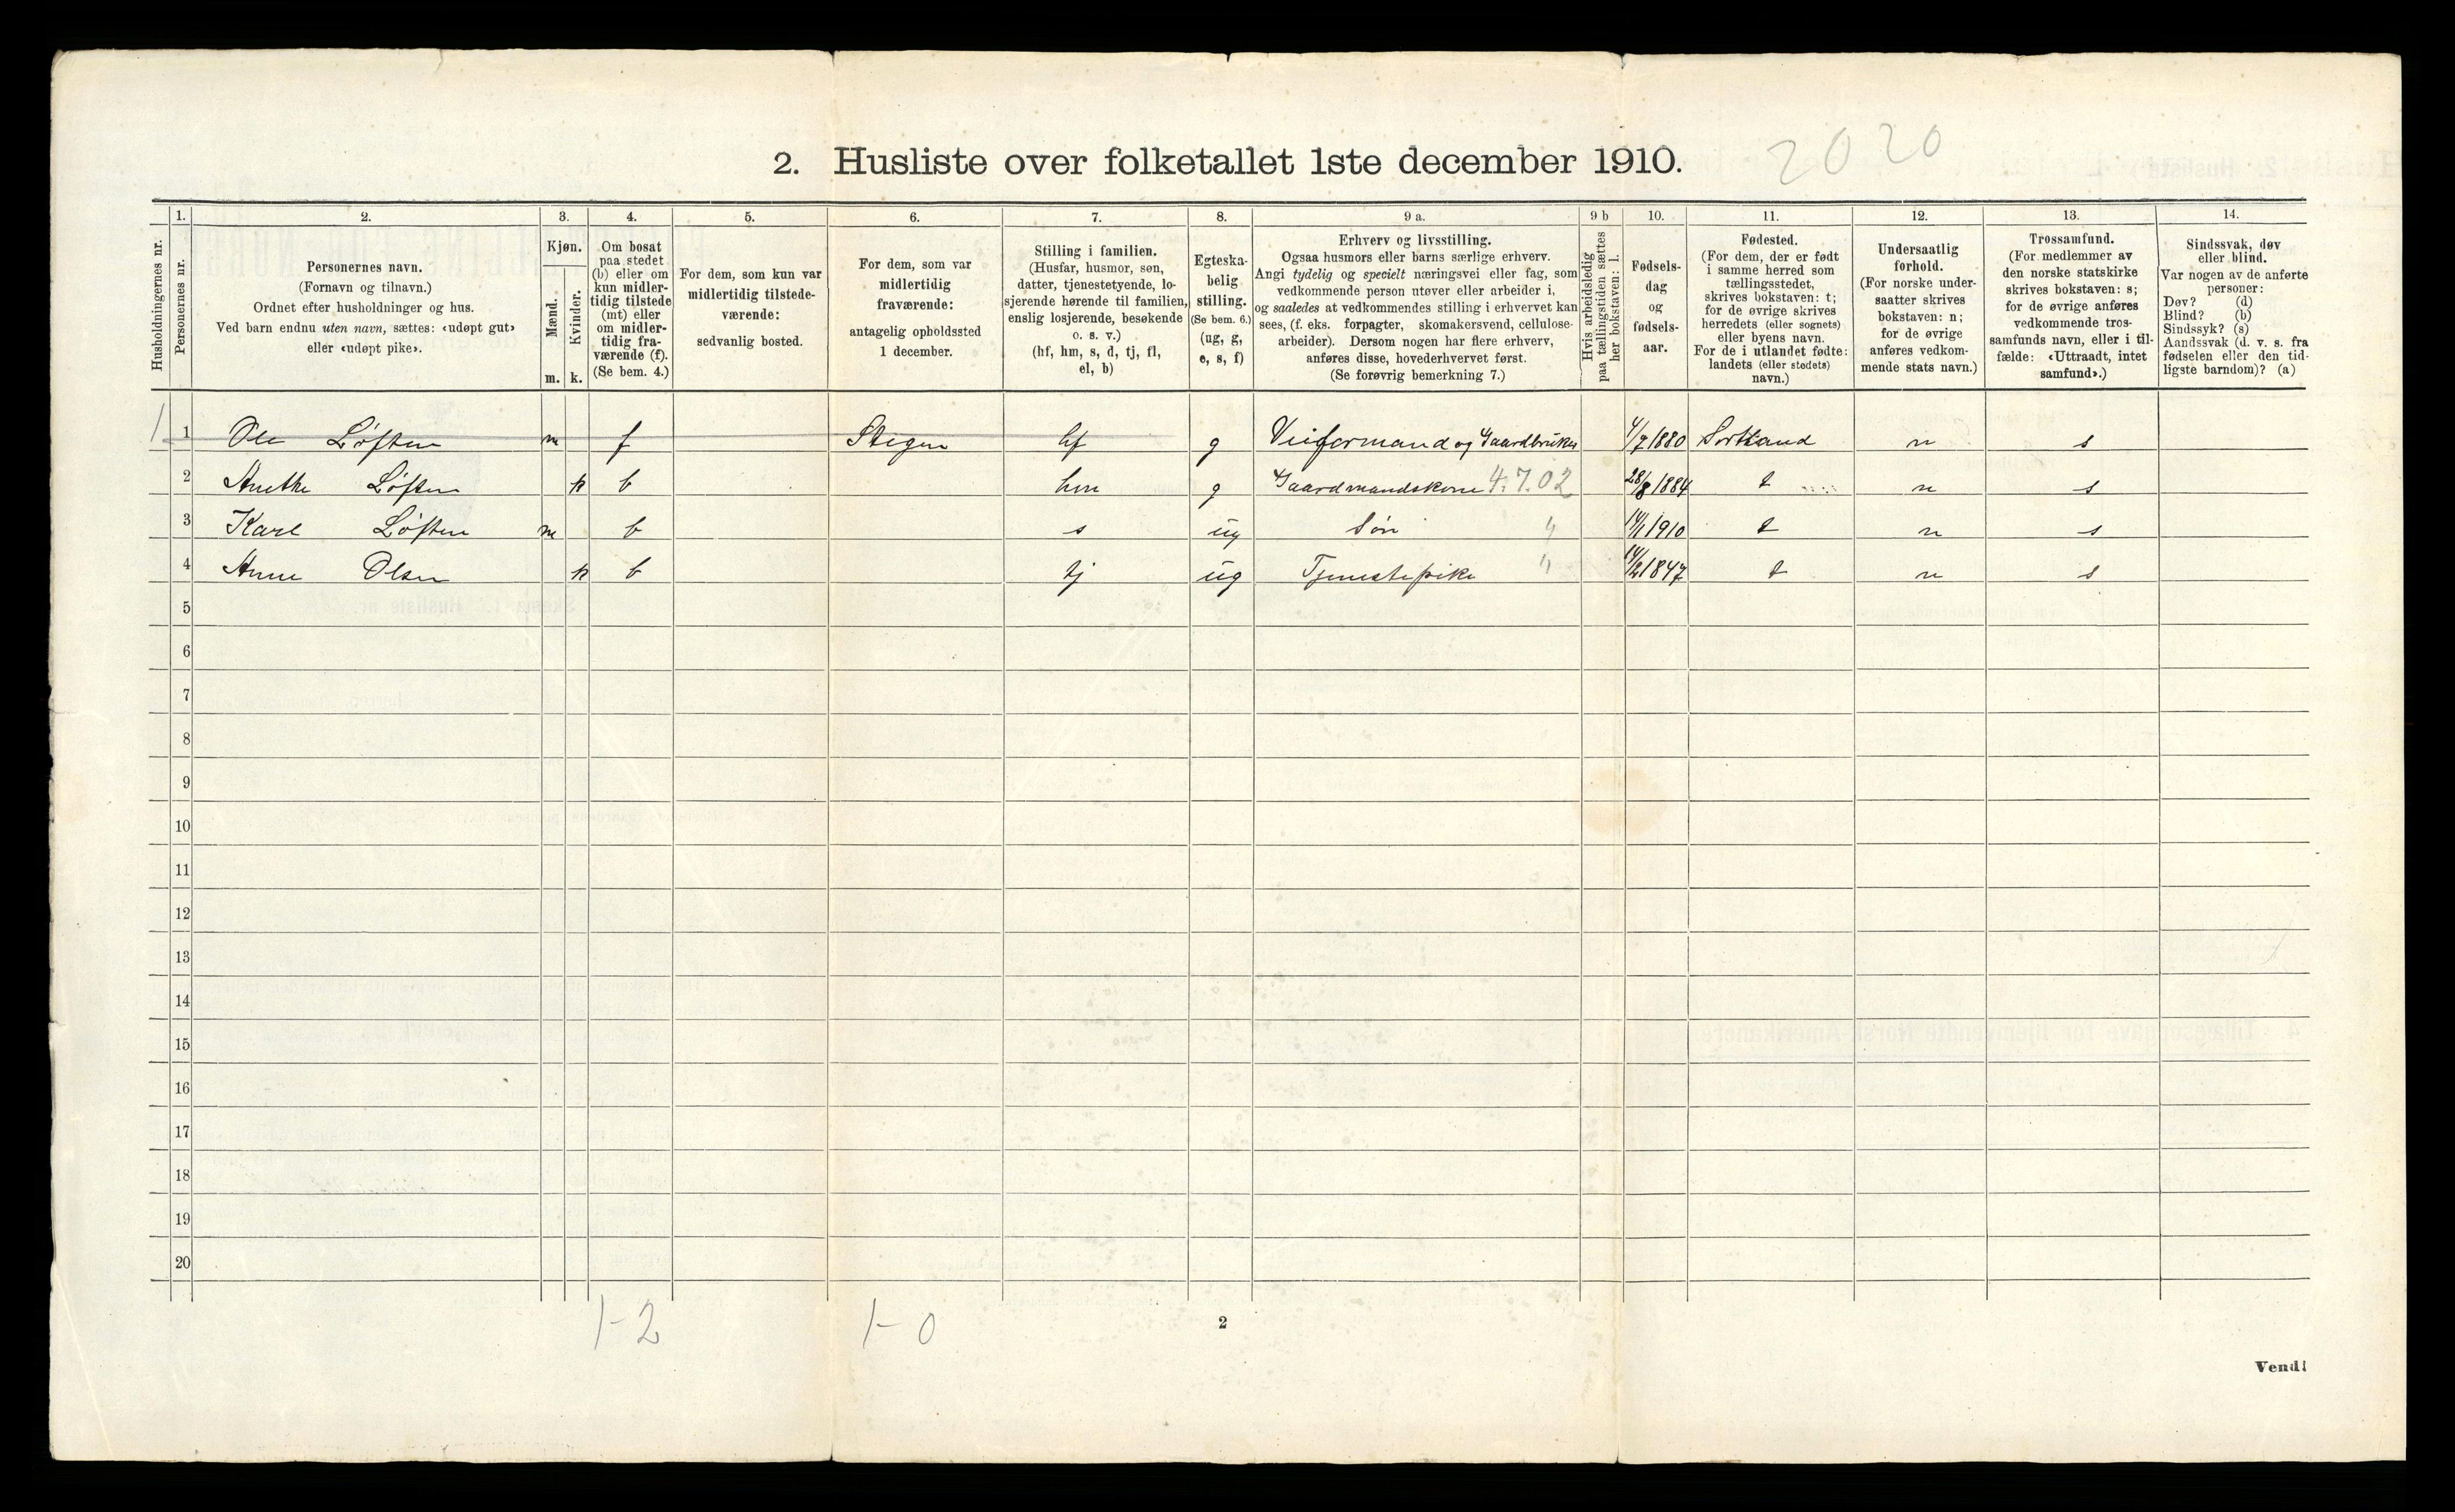 2. Husliste over folketallet 1ste december 1910.
2020
Husholdningernes nr.
1.
Personernes nr.
2.
Personernes navn.
(Fornavn og tilnavn.)
Ordnet efter husholdninger og hus.
Ved barn endnu uten navn, sættes: «udøpt gut»
eller «udøpt pike».
3.
Kjøn.
Mænd.
Kvinder.
m. k.
4.
Om bosat
paa stedet
(b) eller om
kun midler-
tidig tilstede
(mt) eller
om midler-
tidig fra-
værende (f).
(Se bem. 4.)
5.
For dem, som kun var
midlertidig tilstede-
værende:
sedvanlig bosted.
6.
For dem, som var
midlertidig
fraværende:
antagelig opholdssted
1 december.
7.
Stilling i familien.
(Husfar, husmor, søn,
datter, tjenestetyende, lo-
sjerende hørende til familien,
enslig losjerende, besøkende
o. s. v.)
(hf, hm, s, d, tj, fl,
el, b)
8.
Egteska-
belig
stilling.
(Se bem. 6.)
(ug, g,
e, s, f)
9 a.
Erhverv og livsstilling.
Ogsaa husmors eller barns særlige erhverv.
Angi tydelig og specielt næringsvei eller fag, som
vedkommende person utøver eller arbeider i,
og saaledes at vedkommendes stilling i erhvervet kan
sees, (f. eks. forpagter, skomakersvend, cellulose-
arbeider). Dersom nogen har flere erhverv,
anføres disse, hovederhvervet først.
(Se forøvrig bemerkning 7.)
9 b
Hvis arbeidsledig
paa tællingstiden sættes
her bokstaven: l.
10.
Fødsels-
dag
og
fødsels-
aar.
11.
Fødested.
(For dem, der er født
i samme herred som
tællingsstedet,
skrives bokstaven: t;
for de øvrige skrives
herredets (eller sognets)
eller byens navn.
For de i utlandet fødte:
landets (eller stedets)
navn.)
12.
Undersaatlig
forhold.
(For norske under-
saatter skrives
bokstaven: n;
for de øvrige
anføres vedkom-
mende stats navn.)
13.
Trossamfund.
(For medlemmer av
den norske statskirke
skrives bokstaven: s;
for de øvrige anføres
vedkommende tros-
samfunds navn, eller i til-
fælde: «Uttraadt, intet
samfund».)
14.
Sindssvak, døv
eller blind.
Var nogen av de anførte
personer:
Døv? (d)
Blind? (b)
Sindssyk? (s)
Aandssvak (d. v. s. fra
fødselen eller den tid-
ligste barndom)? (a)
1 1 Ole Løften m f Steigen hf g Veiformand og Gaardbruker 4/7 1880 Sortland n s
2 Anethe Løften k b hm g Gaardmandskone 4.7.02 28/8 1884 t n s
3 Karl Løften m b s ug Søn " 14/1 1910 t n s
4 Anne Olsen k b tj ug Tjenestepike " 14/2 1847 t n s
5
6
7
8
9
10
11
12
13
14
15
16
17
18
19
20
1-2 1-0
2
Vend!